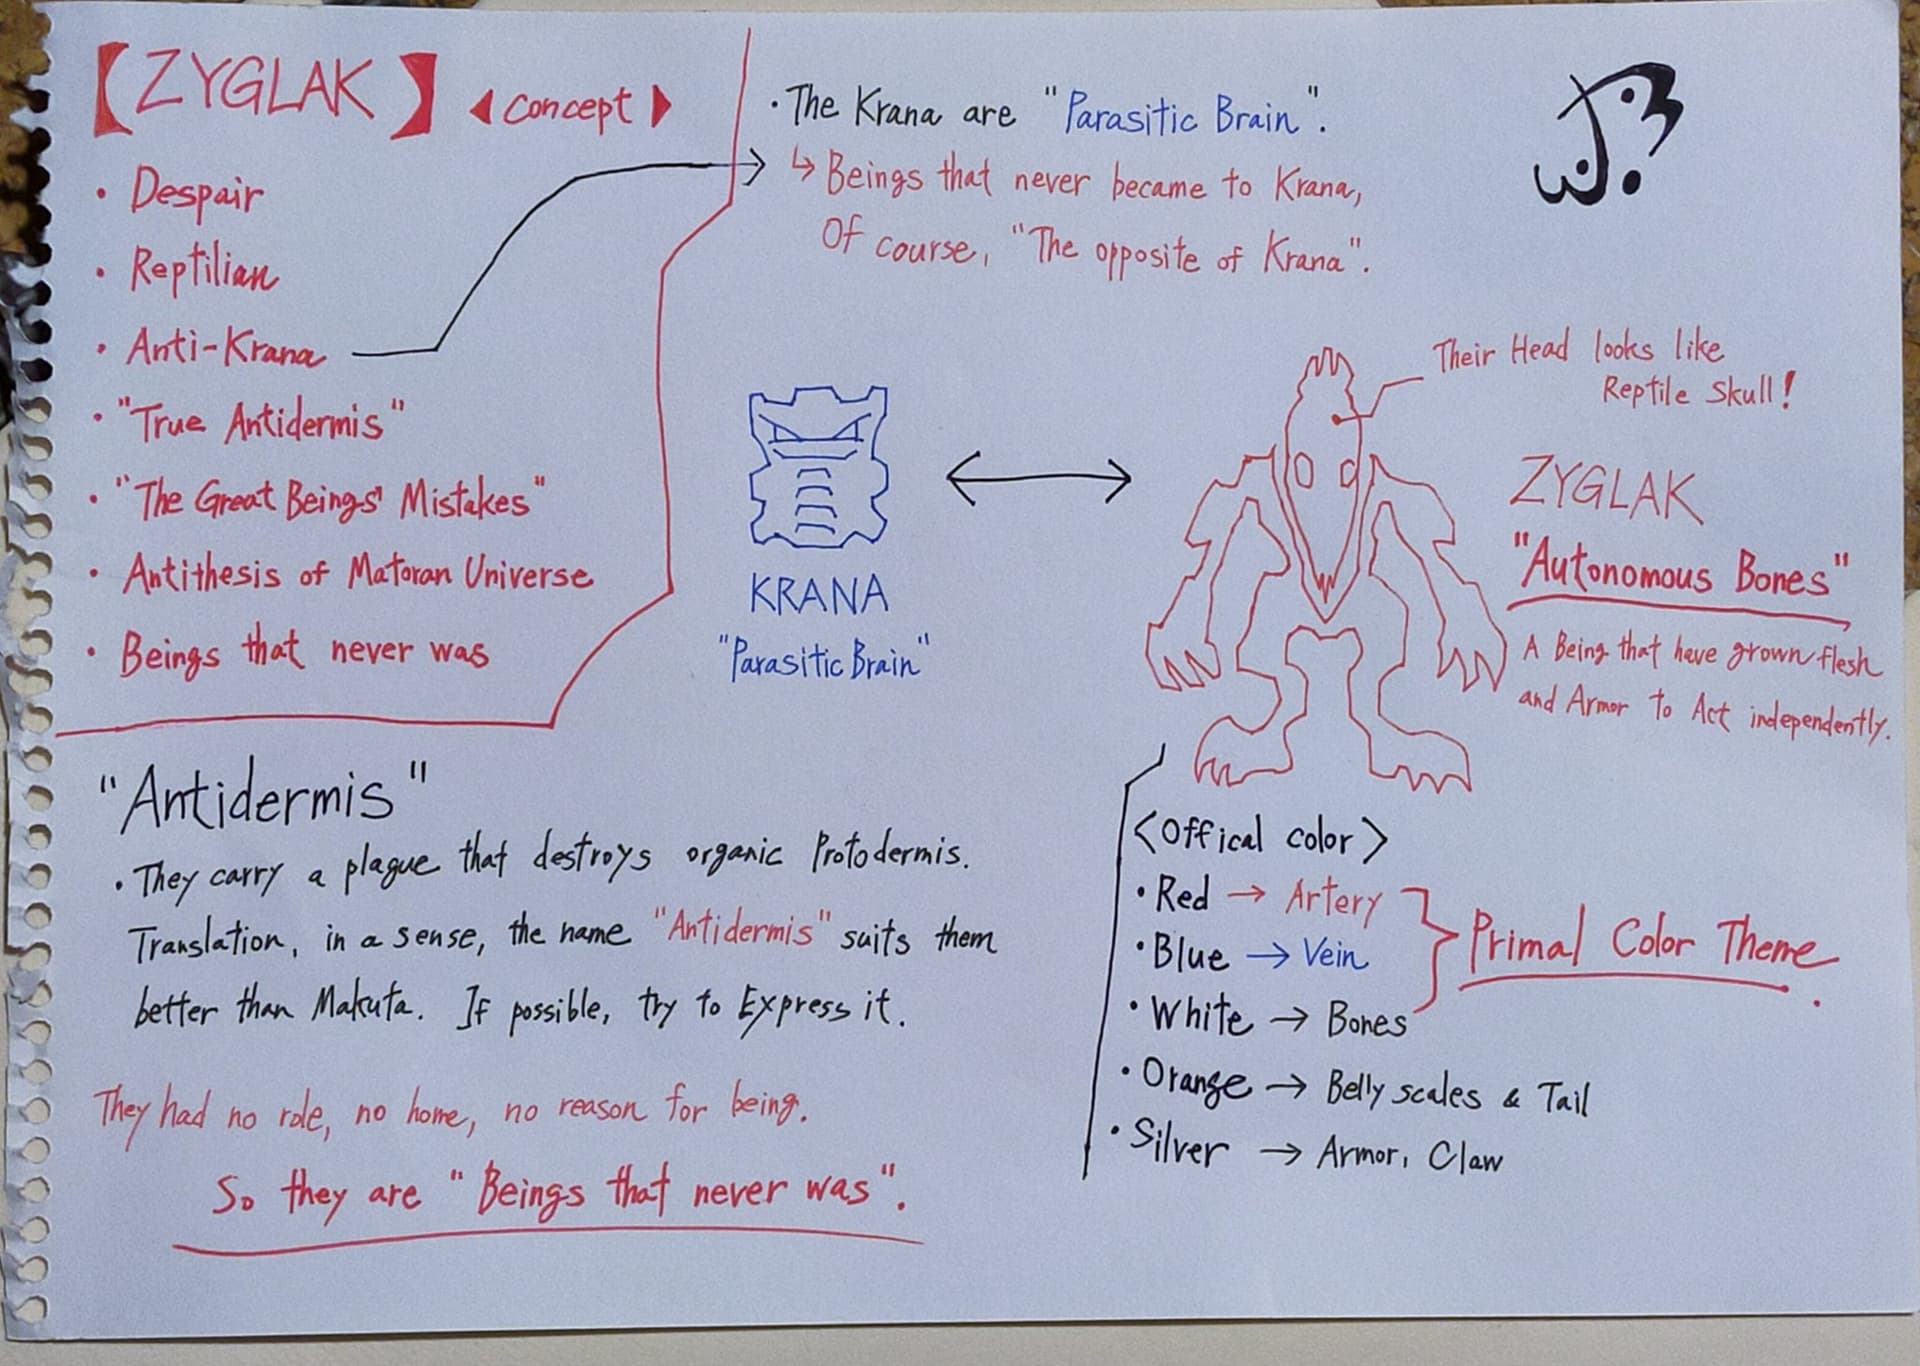 【ZYGLAK】 ◀Concept▶
・Despair
・Reptilian
・Anti-Krana
・"True Antidermis"
・"The Great Beings' Mistakes"
・Antithesis of Matoran Universe
・Beings that never was
・The Krana are "Parasitic Brain".
↳ Beings that never became to Krana,
Of course, "The opposite of Krana".
Their Head looks like
Reptile Skull!
KRANA
"Parasitic Brain"
ZYGLAK
"Autonomous Bones"
A Being that have grown flesh
and Armor to Act independently.
"Antidermis"
・They carry a plague that destroys organic Protodermis.
Translation, in a sense, the name "Antidermis" suits them
better than Makuta. If possible, try to Express it.
They had no role, no home, no reason for being.
So they are "Beings that never was".
<Offical color>
・Red → Artery
・Blue → Vein
・White → Bones
Primal Color Theme.
・Orange → Belly scales & Tail
・Silver → Armor, Claw